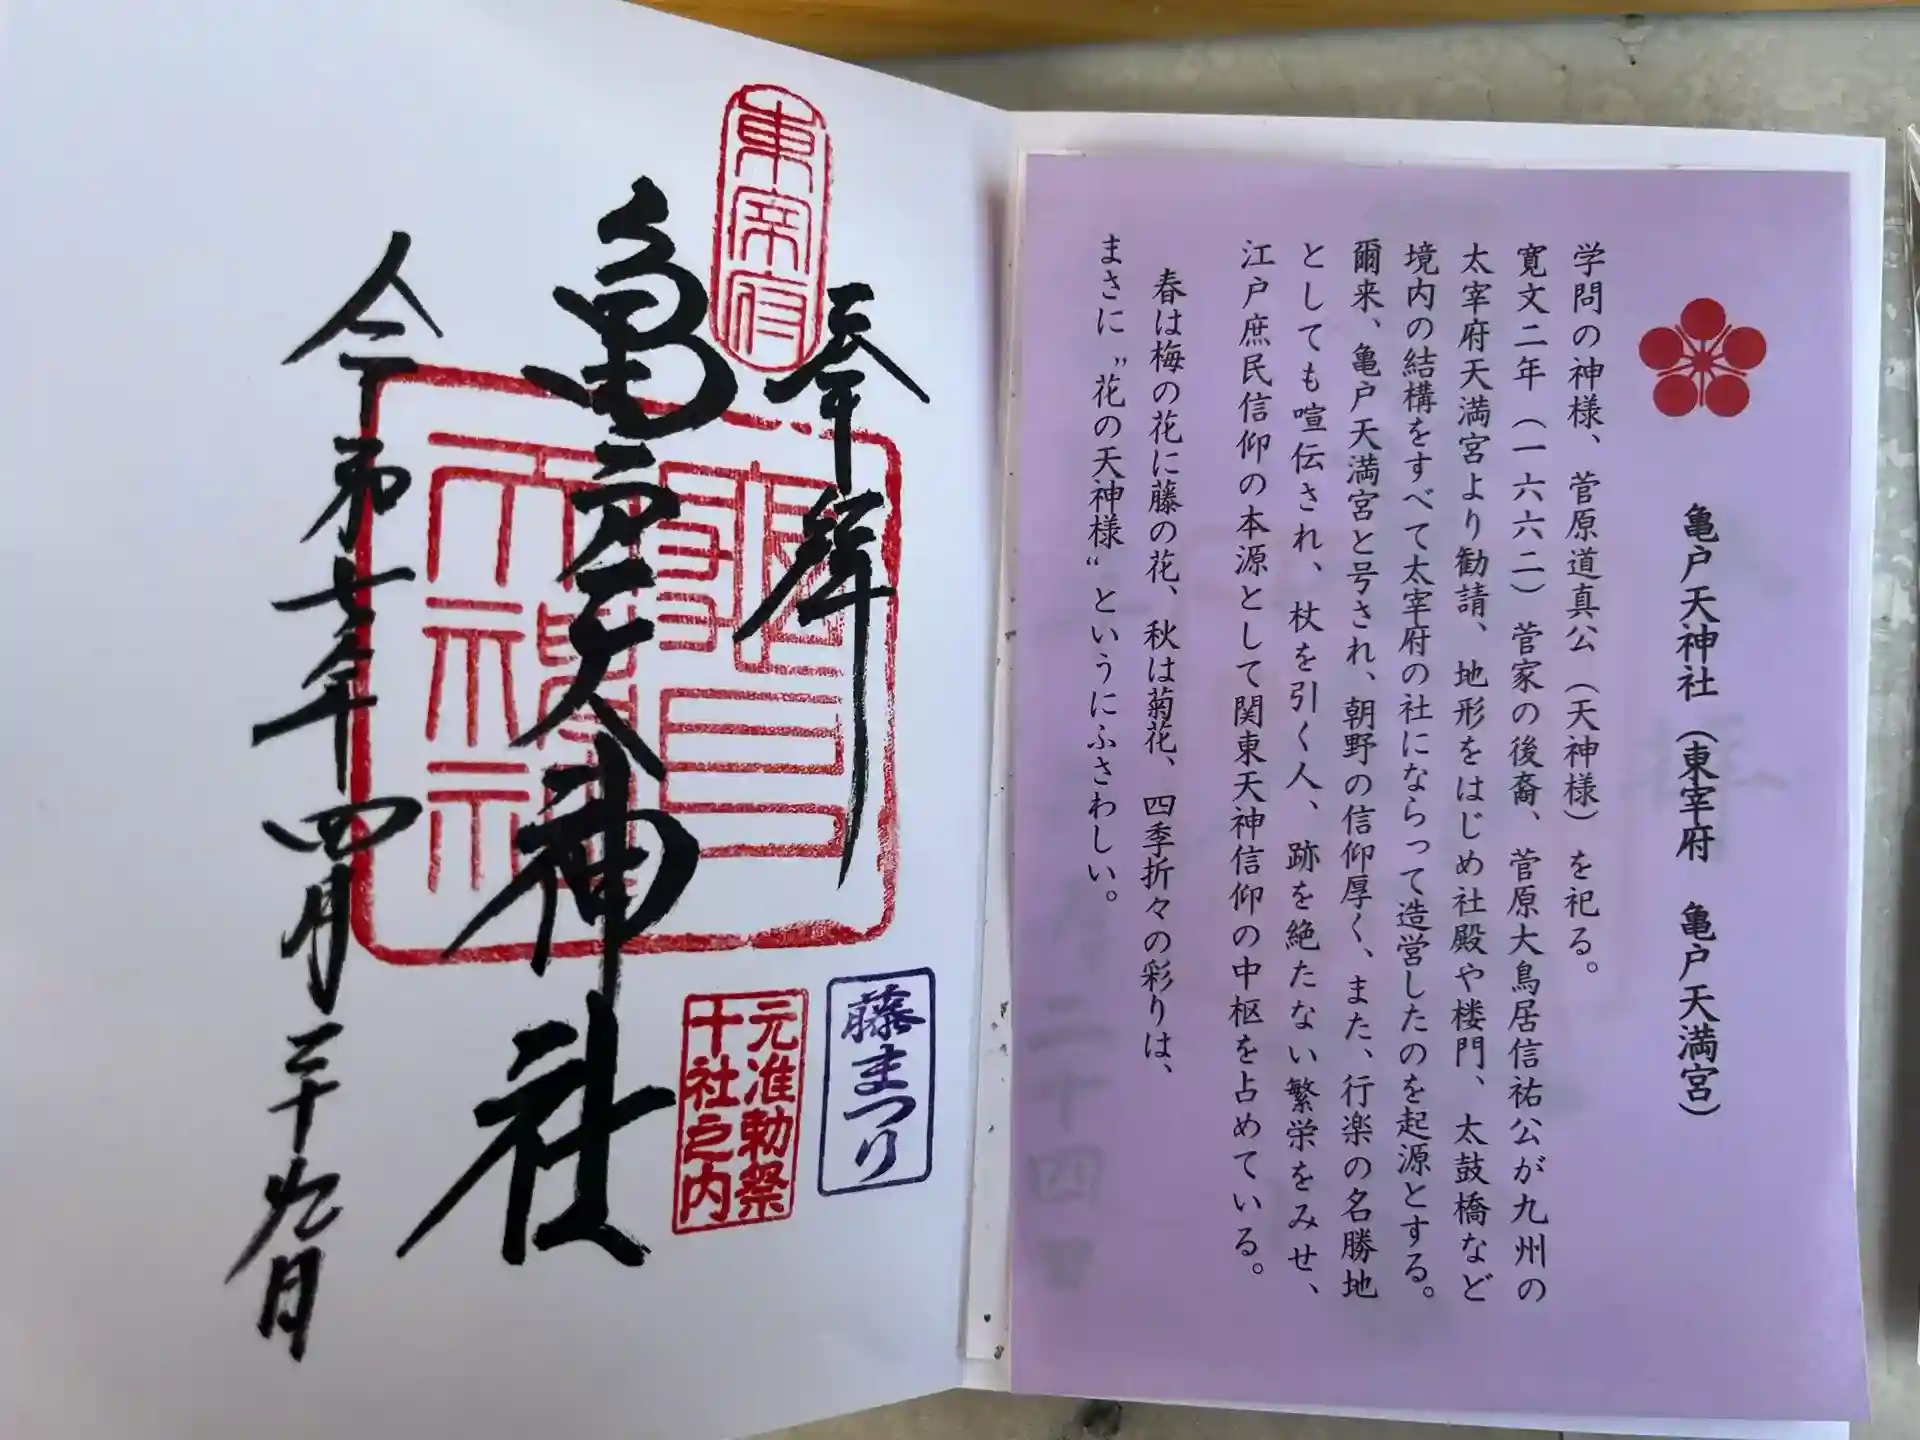 亀戸天神社（東宰府　亀戸天満宮）
学問の神様、菅原道真公（天神様）を祀る。
寛文二年（一六六二）菅家の後裔、菅原大鳥居信祐公が九州の
太宰府天満宮より勧請、地形をはじめ社殿や楼門、太鼓橋など
境内の結構をすべて太宰府の社にならって造営したのを起源とする。
爾来、亀戸天満宮と号され、朝野の信仰厚く、また、行楽の名勝地
としても喧伝され、杖を引く人、跡を絶たない繁栄をみせ、
江戸庶民信仰の本源として関東天神信仰の中枢を占めている。
春は梅の花に藤の花、秋は菊花、四季折々の彩りは、
まさに〝花の天神様〟というにふさわしい。
東宰府
奉拝
藤まつり
亀戸天神社
元准勅祭
十社之内
令和七年四月二十九日